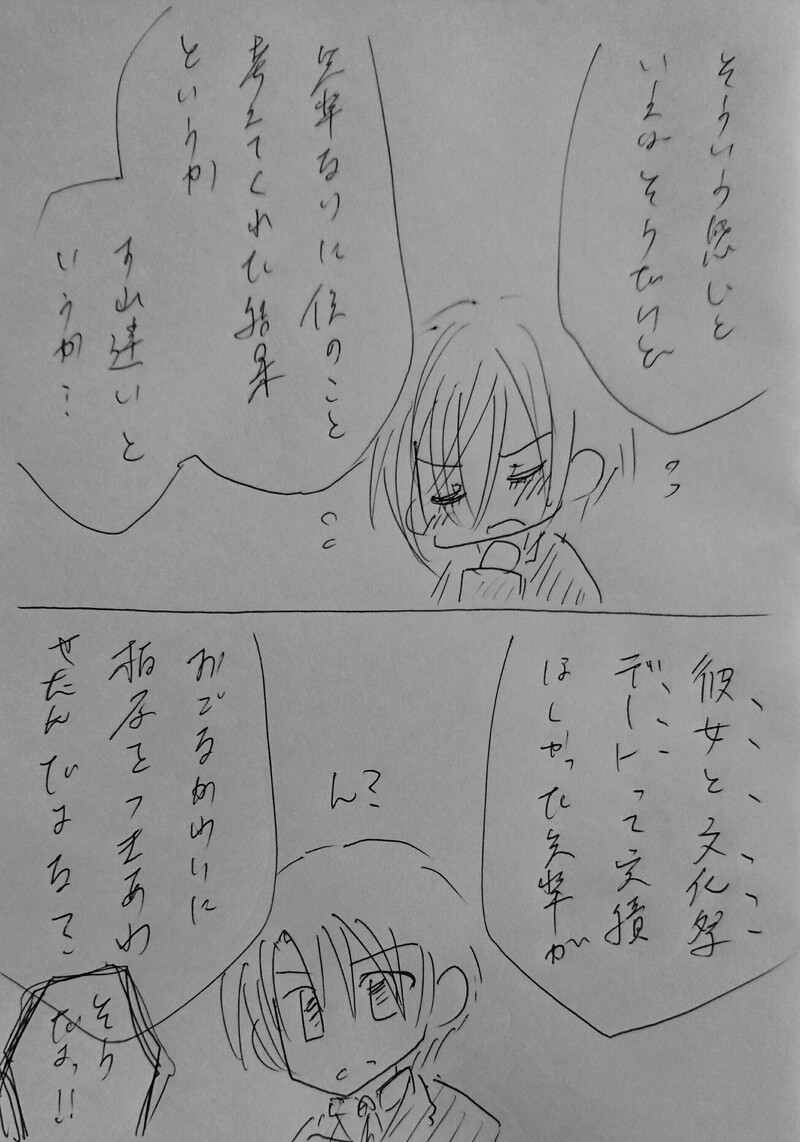 そういう感じと
いえばそうだけど
矢岸なりに俺のこと
考えてくれた結果
というか
すれ違いと
いうか…
彼女と文化祭
デートって実績
ほしかった矢岸が
ん？
おごるかわりに
柏原をつきあわ
せたんだよな？
そう
なっ!!